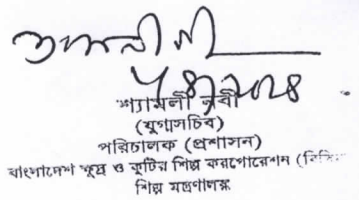 শ্যামলী নবী
(যুগ্মসচিব)
পরিচালক (প্রশাসন)
বাংলাদেশ ক্ষুদ্র ও কুটির শিল্প করপোরেশন (বিসিক
শিল্প মন্ত্রণালয়